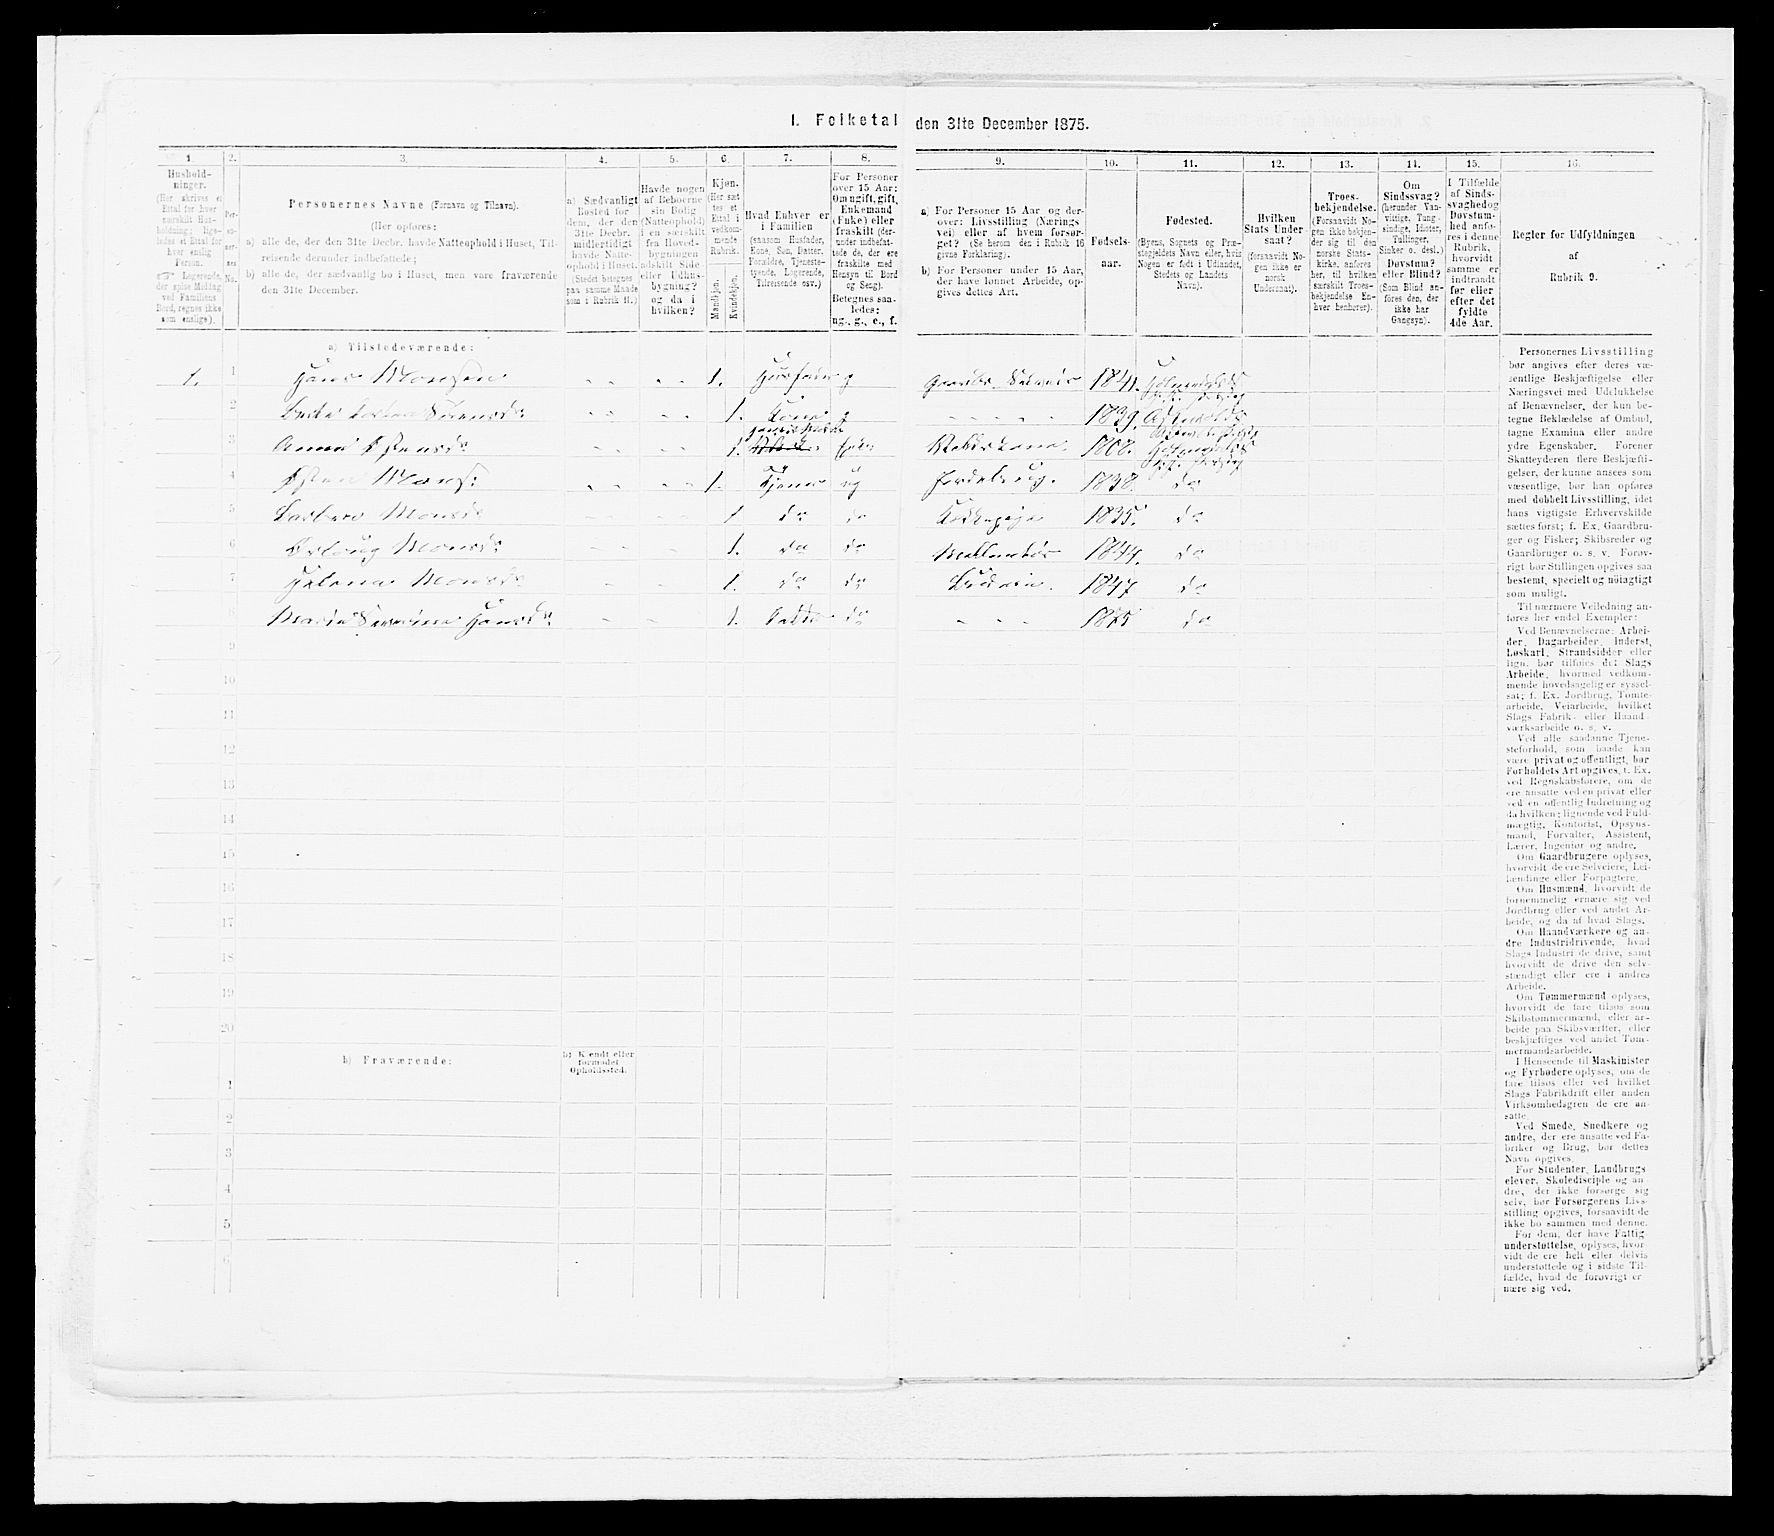 1. Folketal den 31te December 1875.
1. 2. 3. 4. 5. 6. 7. 8. 9. 10. 11. 12. 13. 14. 15. 16.
Hushold-
ninger.
(Her skrives et
Ettal for hver
særskilt Hus-
holdning; lige-
ledes et Ettal for
hver enslig
Person.
☞ Logerende,
der spise Middag
ved Familiens
Bord, regnes ikke
som enslige).
Per-
so-
ner-
nes
No.
Personernes Navne (Fornavn og Tilnavn).
(Her opføres:
a) alle de, der den 31te Decbr. havde Natteophold i Huset, Til-
reisende derunder indbefattede;
b) alle de, der sædvanlig bo i Huset, men vare fraværende
den 31te December.
a) Sædvanligt
Bosted for
dem, der den
31te Decbr.
midlertidigt
havde Natte-
ophold i Huset.
(Stedet betegnes
paa samme Maade
som i Rubrik 11.)
Havde nogen
af Beboerne
sin Bolig
(Natteophold)
i en særskilt
fra Hoved-
bygningen
adskilt Side-
eller Udhus-
bygning?
og da i
hvilken?
Kjøn.
(Her sæt-
tes et
Ettal i
vedkom-
mende
Rubrik.
Mandkjøn.
Kvindekjøn.
Hvad Enhver er
i Familien
(saasom Husfader,
Kone, Søn, Datter,
Forældre, Tjeneste-
tyende, Logerende,
Tilreisende osv.)
For Personer
over 15 Aar:
Om ugift, gift,
Enkemand
(Enke) eller
fraskilt (der-
under indbefat-
tede de, der ere
fraskilte med
Hensyn til Bord
og Seng).
Betegnes saa-
ledes:
ug., g., e., f.
a) For Personer 15 Aar og der-
over: Livsstilling (Nærings-
vei) eller af hvem forsør-
get? (Se herom den i Rubrik 16
givne Forklaring).
b) For Personer under 15 Aar,
der have lønnet Arbeide, op-
gives dettes Art.
Fødsels-
aar.
Fødested.
(Byens, Sognets og Præ-
stegjeldets Navn eller, hvis
Nogen er født i Udlandet,
Stedets og Landets
Navn).
Hvilken
Stats Under-
saat?
(forsaavidt No-
gen ikke er
norsk
Undersaat).
Troes-
bekjendelse.
(Forsaavidt No-
gen ikke bekjen-
der sig til den
norske Stats-
kirke, anføres
her, til hvilken
særskilt Troes-
bekjendelse En-
hver henhører).
Om
Sindssvag?
(herunder Van-
vittige, Tung-
sindige, Idioter,
Tullinger,
Sinker o. desl.)
Døvstum?
eller Blind?
(Som Blind an-
føres den, der
ikke har
Gangsyn).
I Tilfælde
af Sinds-
svaghed og
Døvstum-
hed anfø-
res i denne
Rubrik,
hvorvidt
samme er
indtraadt
før eller
efter det
fyldte
4de Aar.
Regler for Udfyldningen
af
Rubrik 9.
a) Tilstedeværende:
1. 1 Hans Monsen 1. g 1841.
2 1. Kone g 1839.
3 Anna 1. Enke 1808.
4 Østen Mons: 1. ug 1838. do
5 1 do do 1835. do
6 1. do do 1844. do
7 Helena Monsd: 1. do do Budeie. 1847 do
8 Marie Severine Hansd: 1. Datter do 1875 do
9
10
11
12
13
14
15
16
17
18
19
20
b) Fraværende:
b) Kjendt eller
formodet
Opholdssted.
1
2
3
4
5
6
Personernes Livsstilling
bør angives efter deres væ-
sentlige Beskjæftigelse eller
Næringsvei med Udelukkelse
af Benævnelser, der kun be-
tegne Bekladelse af Ombud,
tagne Examina eller andre
ydre Egenskaber. Forener
Skatteyderen flere Beskjæfti-
gelser, der kunne ansees som
væsentlige, bør han opføres
med dobbelt Livsstilling, idet
hans vigtigste Erhvervskilde
sættes først; f. Ex. Gaardbru-
ger og Fisker; Skibsreder og
Gaardbruger o. s. v. Forøv-
rigt bør Stillingen opgives saa
bestemt, specielt og nøiagtigt
som muligt.
Til nærmere Veiledning an-
føres her endel Exempler:
Ved Benævnelserne: Arbei-
der, Dagarbeider, Inderst,
Løskarl, Strandsidder eller
lign. bør tilføies det Slags
Arbeide, hvormed vedkom-
mende hovedsagelig er syssel-
sat; f. Ex. Jordbrug, Tomte-
arbeide, Veiarbeide, hvilket
Slags Fabrik- eller Haand-
værksarbeide o. s. v.
Ved alle saadanne Tjene-
steforhold, som baade kan
være privat og offentligt, bør
Forholdets Art opgives, t. Ex.
ved Regnskabsførere, om de
ere ansatte ved en privat eller
ved en offentlig Indretning og
da hvilken; lignende ved Fuld-
mægtig, Kontorist, Opsyns-
mand, Forvalter, Assistent,
Lærer, Ingeniør og andre.
Om Gaardbrugere oplyses,
hvorvidt de ere Selveiere, Lei-
lændinge eller Forpagtere.
Om Husmænd, hvorvidt de
fornemmelig ernære sig ved
Jordbrug eller ved andet Ar-
beide, og da af hvad Slags.
Om Haandværkere og an-
dre Industridrivende, hvad
Slags Industri de drive, samt
hvorvidt de drive den selv-
stændigt eller ere i andres
Arbeide.
Om Tømmermænd oplyses,
hvorvidt de fare tilsøs som
Skibstømmermænd, eller ar-
beide paa Skibsværfter, eller
beskjæftiges ved andet Tøm-
mermandsarbeide.
I Henseende til Maskinister
og Fyrbødere oplyses, om de
fare tilsøs eller ved hvilket
Slags Fabrikdrift eller anden
Virksomhedsgren de ere an-
satte.
Ved Smede, Snedkere og
andre, der ere ansatte ved Fa-
briker og Brug, bør dettes
Navn opgives.
For Studenter, Landbrugs-
elever, Skoledisciple og an-
dre, der ikke forsørge sig
selv, bør Forsørgerens Livs-
stilling opgives, forsaavidt de
ikke bo sammen med denne.
For dem, der have Fattig-
understøttelse, oplyses, hvor-
vidt de ere helt eller delvis
understøttede og i sidste Til-
fælde, hvad de forøvrigt er-
nære sig ved.